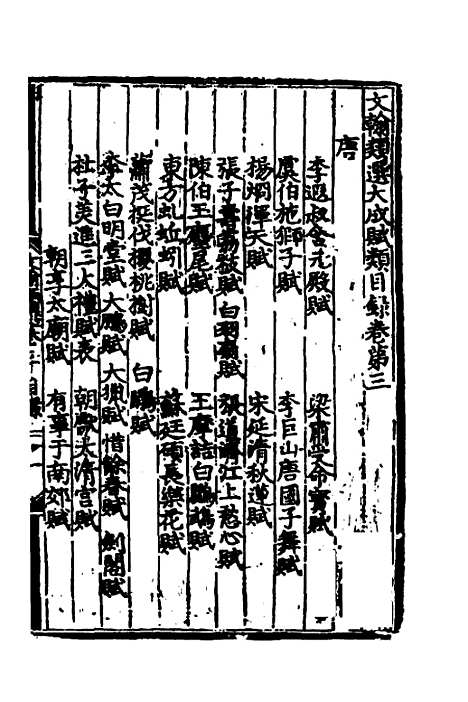 文翰類選大成賦類目錄卷第三
唐
李遐叔含元殿賦　梁肅受命寶賦
虞伯施獅子賦　李巨山唐國子舞賦
楊炯渾天賦　宋延清秋蓮賦
張子壽荔枝賦　白羽扇賦　張道濟江上愁心賦
陳伯玉麈尾賦　王摩詰白鸚鵡賦
東方虬蚯蚓賦　蘇廷碩長樂花賦
蕭茂挺伐櫻桃樹賦　白鷴賦
李太白明堂賦　大鵬賦　大獵賦　惜餘春賦　劍閣賦
杜子美進三大禮賦表　朝獻太清宮賦
朝享太廟賦　有事于南郊賦